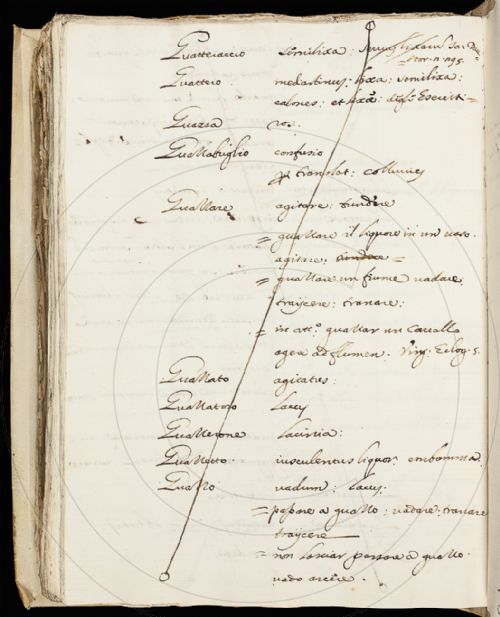 Guatteraccio semilixa:
Guattero. mediastinus: lixa: semilixa:
calones: et lixæ: degl' Eserciti =
Guazza ros.
Guazzabuglio confusio
translat: colluvies
Guazzare agitare: fundere
= guazzare il liquore in un vaso.
agitare: =
= guazzare un fiume vadare:
traijcere: tranare:
= in att.º guazzar un Cavallo
agere ad flumen. Virg: Eclog. 5.
Guazzato agitatus:
Guazzatoio Lacus
Guazzerone Lacinia:
Guazzetto. iusculentus liquor: embamma.
Guazzo vadum: lacus.
= passare a guazzo: vadare: tranare
traijcere
= non lasciar passare a guazzo.
vado arcere.